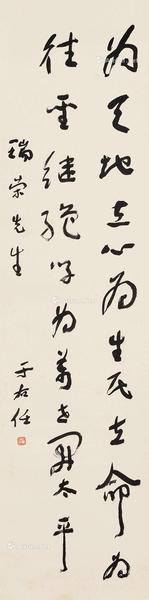 为天地立心为生民立命为
往圣继绝学为万世开太平
瑞荣先生
于右任